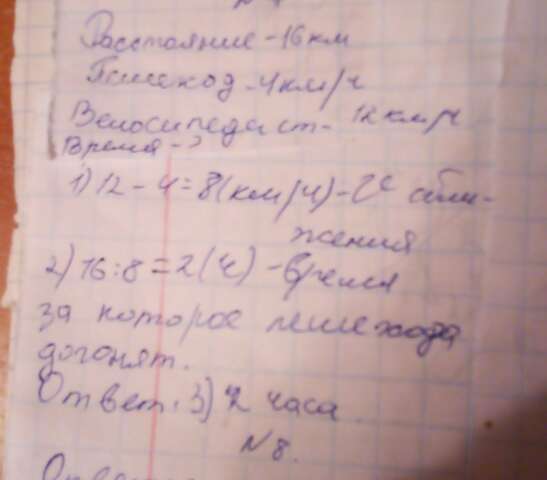 Расстояние - 16 км
Пешеход - 4 км/ч
Велосипедист - 12 км/ч
Время - ?
1) 12 - 4 = 8 (км/ч) - V сбли-
жения
2) 16 : 8 = 2 (ч) - время
за которое пешехода
догонят.
Ответ: 3) 2 часа
№ 8.